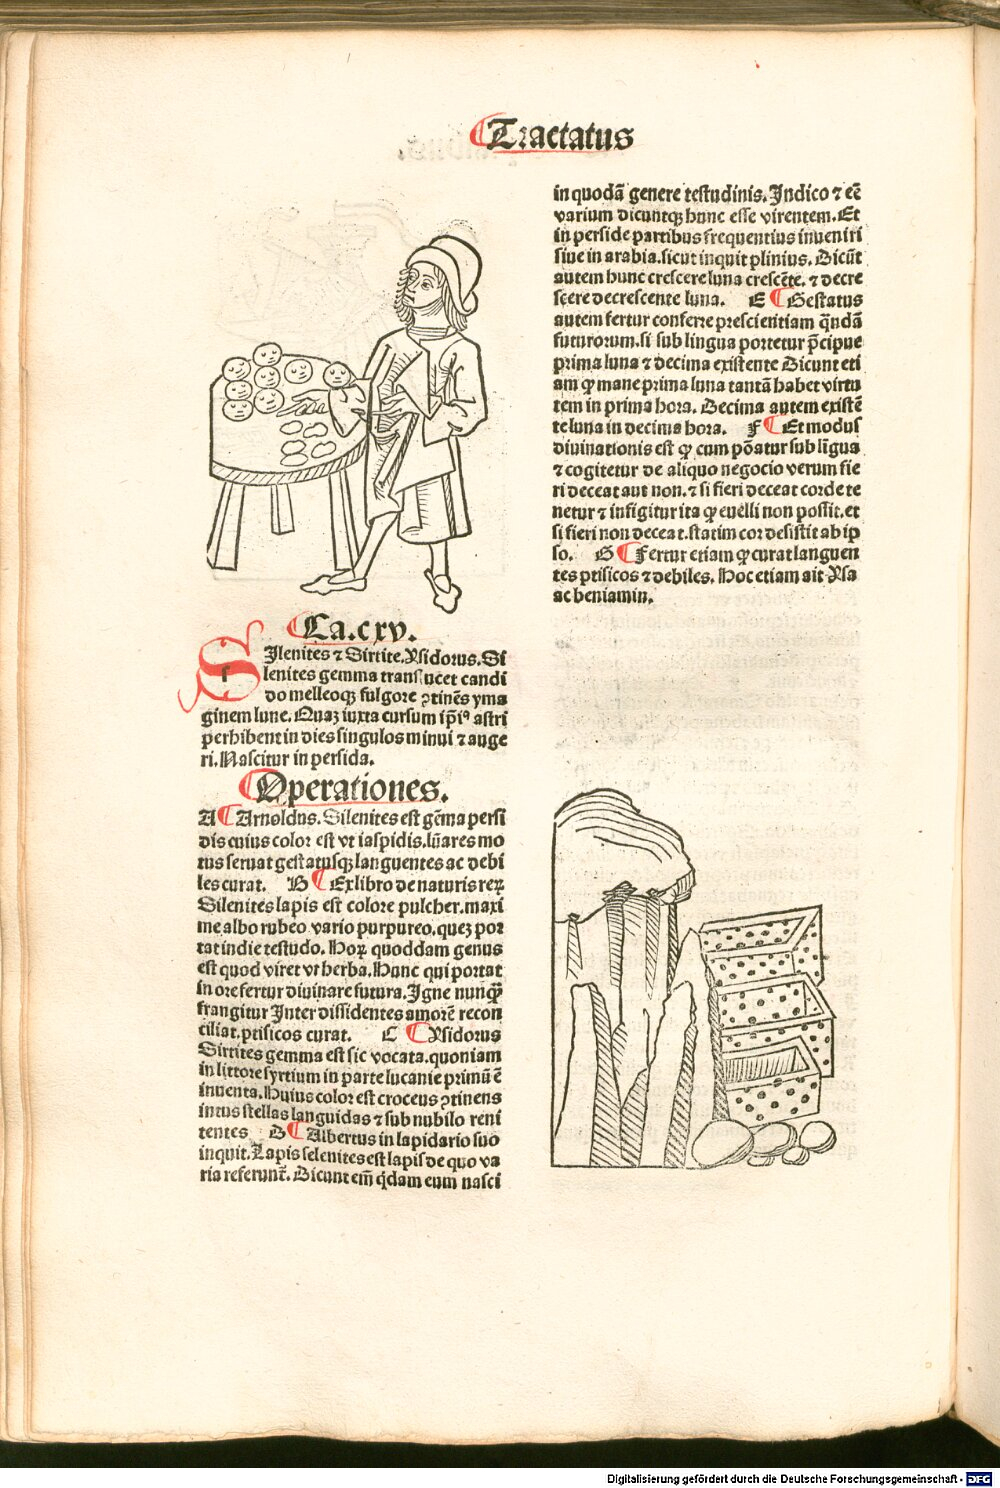 Tractatus
Ca.cxv.
SIlenites ⁊ Sirtite.Ysidorus.Si
lenites gemma translucet candi
do melleoqꝫ fulgore ꝯtinēs yma
ginem lune. Quaꝫ iuxta cursum ip̄iꝰ astri
perhibent in dies singulos minui ⁊ auge
ri. Nascitur in persida.
Operationes.
A Arnoldus. Silenites est gēma persi
dis cuius color est vt iaspidis.lūares mo
tus seruat gestatusqꝫ languentes ac debi
les curat. B Ex libro de naturis reꝝ
Silenites lapis est colore pulcher.maxi
me albo rubeo vario purpureo.queꝫ por
tat indie testudo. Hoꝝ quoddam genus
est quod viret vt herba. Hunc qui portat
in ore fertur diuinare futura. Igne nunqꝫ̄
frangitur Inter dissidentes amorē recon
ciliat.ptisicos curat. C Ysidorus
Sirtites gemma est sic vocata.quoniam
in littore syrtium in parte lucanie primū ē
inuenta. Huius color est croceus ꝯtinens
intus stellas languidas ⁊ sub nubilo reni
tentes D Albertus in lapidario suo
inquit. Lapis selenites est lapis de quo va
ria referunt̄. Dicunt em̄ q́dam eum nasci
in quodā genere testudinis. Indico ⁊ eē
varium dicuntqꝫ hunc esse virentem. Et
in perside partibus frequentius inueniri
siue in arabia.sicut inquit plinius. Dicūt
autem hunc crescere luna crescēte. ⁊ decre
scere decrescente luna. E Gestatus
autem fertur conferre prescientiam q̄ndā
futurorum.si sub lingua portetur p̄cipue
prima luna ⁊ decima existente Dicunt eti
am ꝙ mane prima luna tantā habet virtu
tem in prima hora. Decima autem existē
te luna in decima hora. F Et modus
diuinationis est ꝙ cum pōatur sub līgua
⁊ cogitetur de aliquo negocio verum fie
ri deceat aut non.⁊ si fieri deceat corde te
netur ⁊ infigitur ita ꝙ euelli non possit.et
si fieri non deceat.statim cor desistit ab ip
so. G Fertur etiam ꝙ curat languen
tes ptisicos ⁊ debiles. Hoc etiam ait Ysa
ac beniamin.
Digitalisierung gefördert durch die Deutsche Forschungsgemeinschaft - DFG